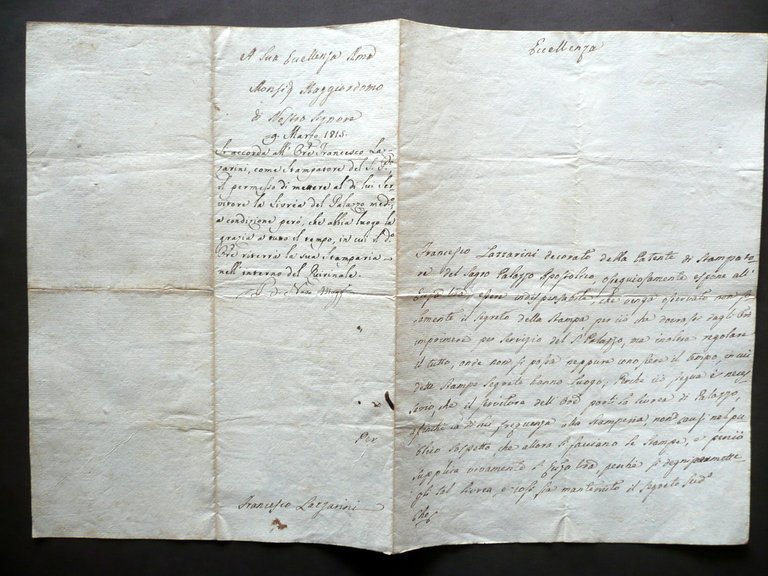 A Sua Eccellenza Rma
Monsig. Maggiordomo
di Nostro Signore
9. Marzo 1815.
Si accorda all'Ore Francesco Laz-
zarini, come Stampatore del S. P.
il permesso di mettere al di lui Ser-
vitore la Livrea del Palazzo medo
a condizione però, che abbia luogo la
grazia a tutto il tempo, in cui d. o
Ore riterrà la sua Stamparia
nell'interno del Quirinale.
Per
Francesco Lazzarini
Eccellenza
Francesco Lazzarini decorato della Patente di Stampato
re del Sagro Palazzo Apostolico, ossequiosamente espone all'
essere indispensabile che venga osservato non so-
lamente il segreto della Stampa per ciò che dovrassi dagli
imprimere per servizio del S. Palazzo, ma inoltre regolare
il tutto, onde non si possa neppure conoscere il tempo, in cui
dette Stampe Segrete hanno luogo, Perche ciò segua è neces-
sario che il servitore dell'Ore porti la livrea di Palazzo,
affinchè la di lui frequenza alla stamperia non causi nel pu-
blico sospetto che allora si facciano le stampe, e perciò
supplica vivamente perchè si degni permette
gli tal livrea, e così sia mantenuto il segreto sudo
Che